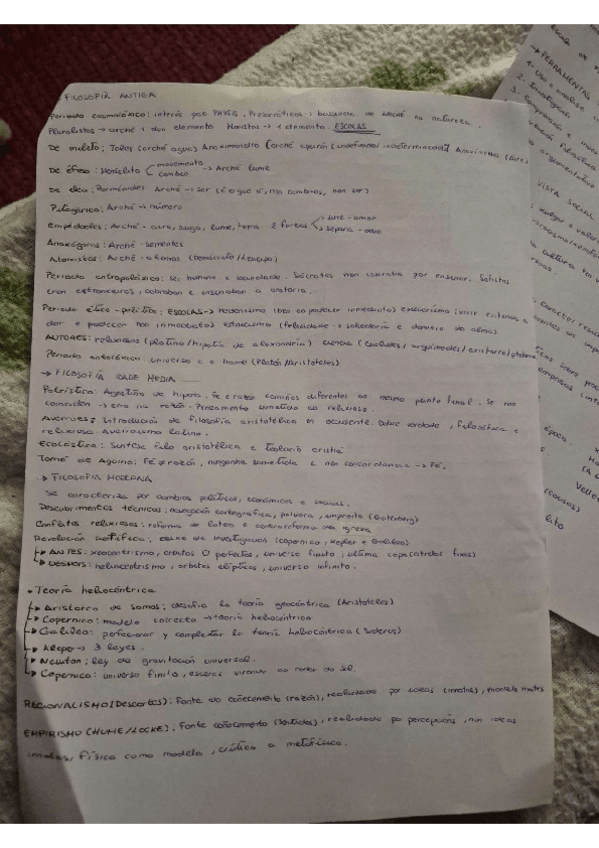 → FILOSOFÍA ANTIGA
Período cosmolóxico: interés pola PHYSIS. Presocráticos → búsqueda do ARCHÉ na natureza.
Pluralistas → arché + dun elemento Monistas → 1 elemento. ESCOLAS
De mileto: Tales (arché auga) Anaximandro (arché apeirón (indefinido-indeterminado)) Anaxímenes (aire)
De éfeso: Heráclito movemento cambio → Arché lume
De elea: Parménides Arché → ser (é o que é, non cambia, non ser)
Pitagórica: Arché → número
Empédocles: Arché - aire, auga, lume, terra 2 forzas une - amor separa - odio
Anaxágoras: Arché - sementes
Atomistas: Arché - átomos (Demócrito/Leucipo)
Período antropolóxico: ser humano e sociedade. Sócrates non cobraba por ensinar. Sofistas
eran extranxeiros, cobraban e ensinaban a oratoria.
Período ético-político: ESCOLAS → hedonismo (ben co pracer inmediato) epicureísmo (vivir evitando a
dor e pracer non inmediato) estoicismo (felicidade → sabedoría e dominio da alma)
AUTORES: relixiosos (plotino/hipatia de alexandría) ciencia (Euclides/arquímedes/aristarco/ptolomeo
Período ontolóxico: universo e o home (Platón/Aristóteles)
→ FILOSOFÍA IDADE MEDIA
Patrística: Agostiño de hipona. Fe e razón camiños diferentes ao mesmo punto final. Se non
coinciden → erro na razón. Pensamento sometido ao relixioso.
Averroes: Introdución da filosofía aristotélica en occidente. Dobre verdade, filosófica e
relixiosa. Averroísmo latino.
Escolástica: Síntese filo aristotélica e teoloxía cristiá
Tomé de Aquino: Fé ≠ razón, ningunha sometida e non concordancia → Fé.
→ FILOSOFÍA MODERNA
Se caracteriza por cambios políticos, económicos e sociais.
Descubrimentos técnicos: navegación cartográfica, pólvora, imprenta (Gutenberg)
Conflitos relixiosos: reforma de lutero e contrarreforma da igrexa
Revolución científica: entre os investigadores (Copérnico, Kepler e Galileo)
→ ANTES: xeocentrismo, órbitas O perfectas, universo finito, última capa (estrelas fixas)
→ DESPOIS: heliocentrismo, órbitas elípticas, universo infinito.
• Teoría heliocéntrica
→ Aristarco de Samos: desafío la teoría geocéntrica (Aristóteles)
→ Copérnico: modelo correcto → teoría heliocéntrica
→ Galileo: perfeccionar y completar la teoría heliocéntrica (Sidereus)
→ Klepe → 3 leyes.
→ Newton: ley da gravitación universal.
→ Copérnico: universo finito, esferas virando ao redor do sol.
RACIONALISMO (Descartes): Fonte do coñecemento (razón), realidade por ideas (innatas), modelo mates
EMPIRISMO (HUME/LOCKE): Fonte coñecemento (Sentidos), realidade por percepcións, non ideas
innatas, física como modelo, crítica a metafísica.
→ FERRAMENTAS
1. Uso e análise
2.
3. Comprensión e
VISTA SOCIAL
a cultura
Caracter
época,